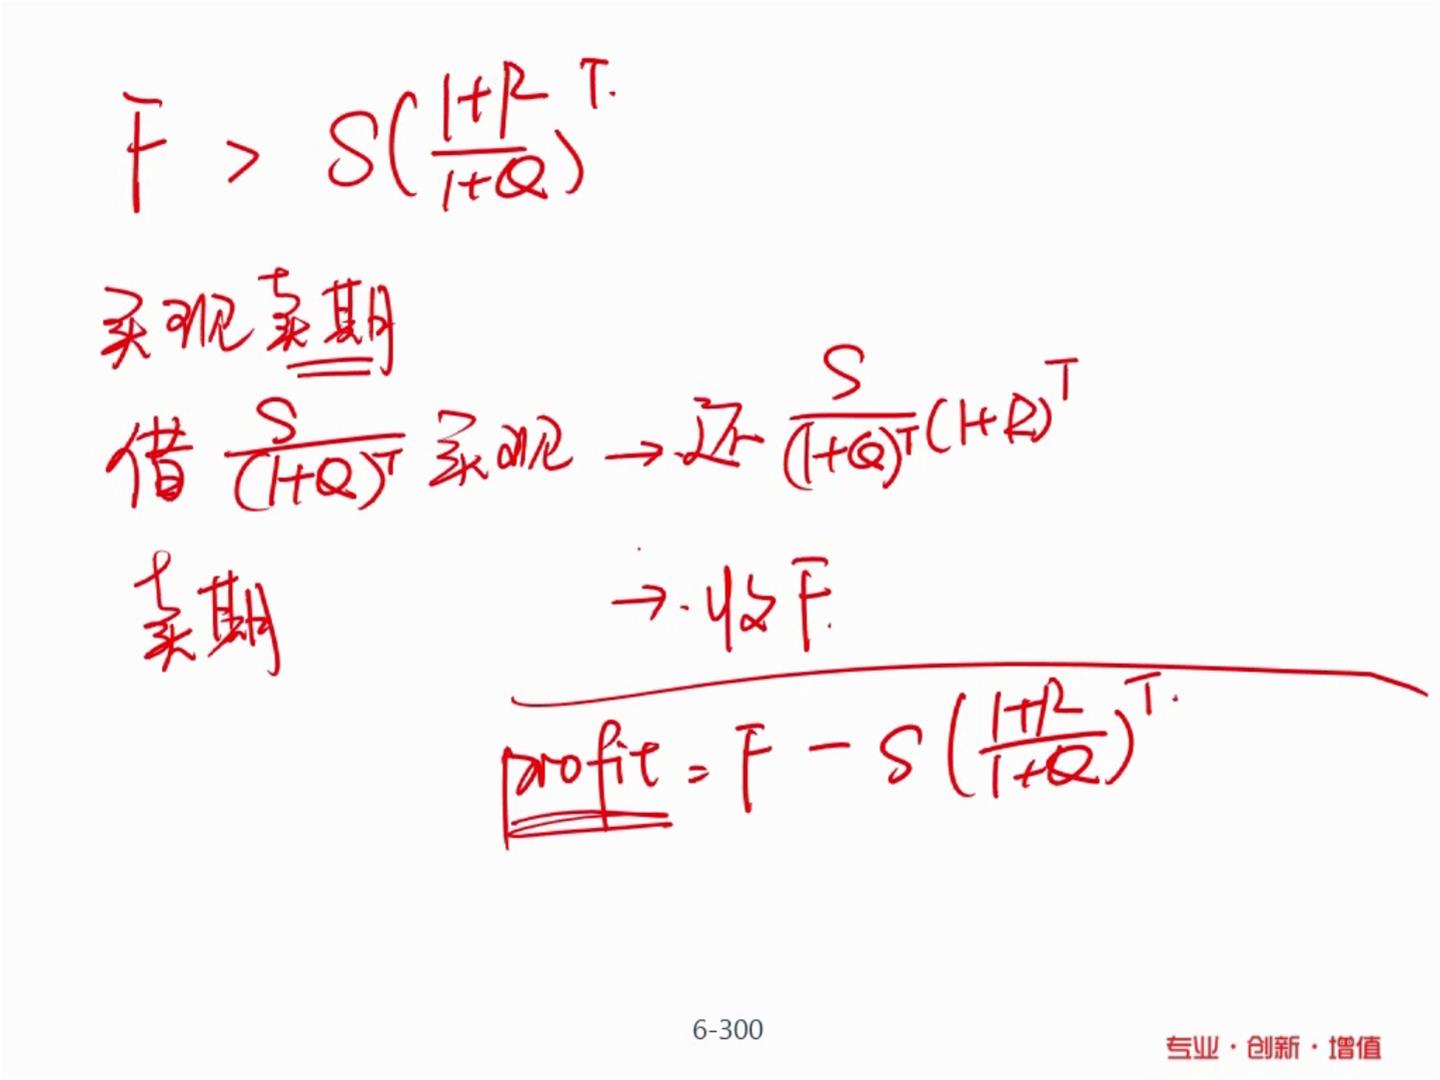 F > S(\frac{1+R}{1+Q})^T
买现卖期
借 \frac{S}{(1+Q)^T} 买现 → 还 \frac{S}{(1+Q)^T}(1+R)^T
卖期 → 收F
profit = F - S(\frac{1+R}{1+Q})^T
6-300
专业·创新·增值